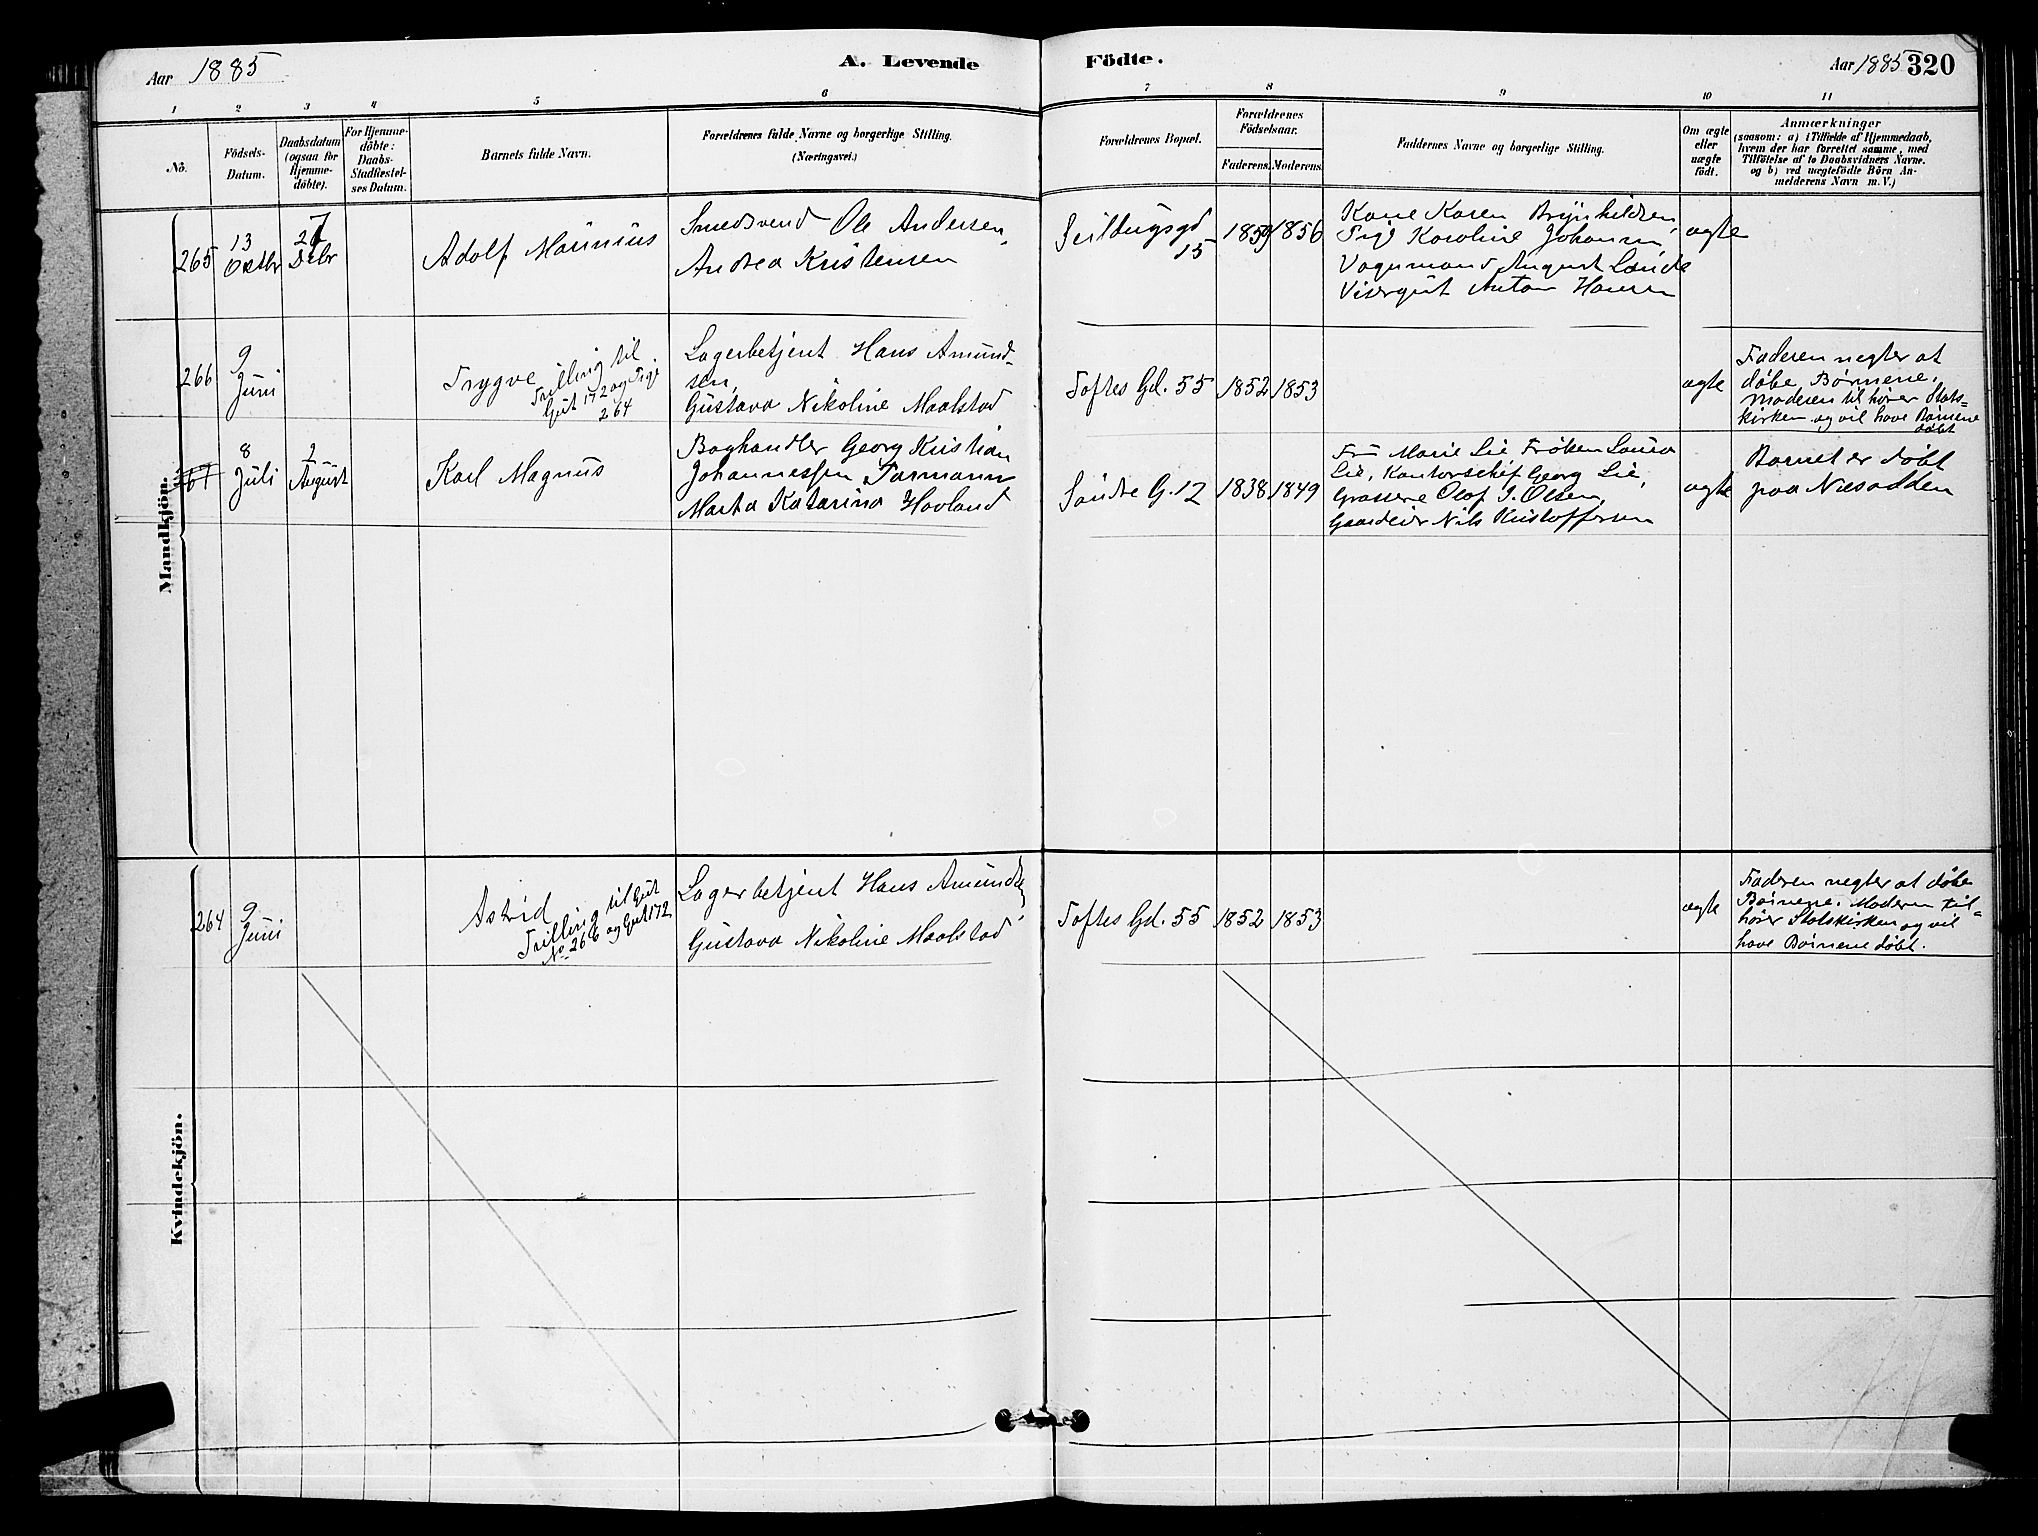 Aar 1885
A. Levende
Födte.
Aar 1885 320
1 2 3 4 5 6 7 8 9 10 11
Nö.
Födsels-
Datum.
Daabsdatum
(ogsaa for
Hjemme-
döbte).
For Hjemme-
döbte:
Daabs-
Stadfæstel-
ses Datum.
Barnets fulde Navn.
Forældrenes fulde Navne og borgerlige Stilling.
(Næringsvei.)
Forældrenes Bopæl.
Forældrenes
Födselsaar.
Faderens. Moderens.
Faddernes Navne og borgerlige Stilling.
Om ægte
eller
uægte
födt.
Anmærkninger
(saasom: a) i Tilfælde af Hjemmedaab,
hvem der har forrettet samme, med
Tilföielse af to Daabsvidners Navne.
og b) ved uægtefödte Börn An-
melderens Navn m. V.)
Mandkjön.
265
13
Octbr
27
Debr
Adolf Marinius
Smedsvend Ole Andersen,
Andrea Kristensen
Seildugsgd
15
1859 1856
Kone Karen Brynhildsen,
Pige Karoline Johansen,
Vognmand August Lunde
Visergut Anton Hansen
ægte
266
9
Juni
Trygve
Trilling til
Gut 172 og Pige
264
Lagerbetjent Hans Amund-
sen,
Gustava Nikoline Maalstad
Toftes Gd. 55
1852 1853
ægte
Faderen negter at
døbe Børnene.
Moderen tilhører Stats-
kirken og vil have Børnene
døbt
267
8
Juli
2
August
Karl Magnus
Boghandler Georg Kristian
Johannessen Parmann
Marta Katarina Hovland
Søndre G. 12
1838 1849
Fru Marie Lie Frøken Laura
Lie, Kontorschef Georg Lie,
Grosserer Olaf I. Olsen,
Gaardeier Nils Kristoffersen
ægte
Barnet er døbt
paa Næsodden
Kvindekjön.
264
9
Juni
Astrid
Trilling til Gut
No 266 og Gut 172
Lagerbetjent Hans Amunds.,
Gustava Nikoline Maalstad
Toftes Gd. 55
1852 1853
ægte
Faderen negter at døbe
Børnene. Moderen til-
hører Statskirken og vil
have Børnene døbt.